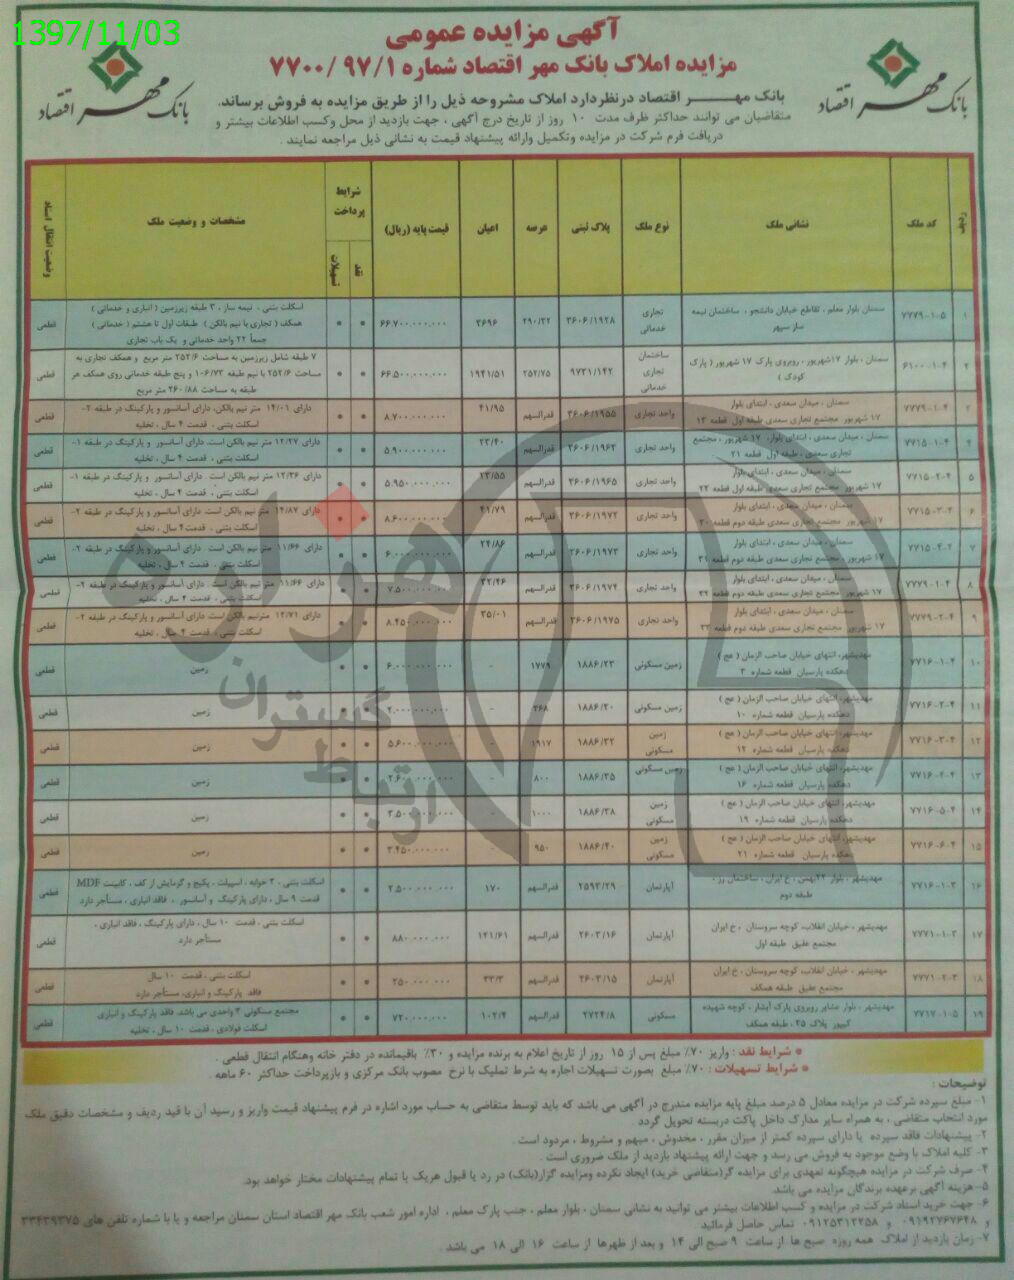 1397/11/03
آگهی مزایده عمومی
مزایده املاک بانک مهر اقتصاد شماره ۹۷/۱ /۷۷۰۰
بانک مهر اقتصاد
بانک مهر اقتصاد
بانک مهـــر اقتصاد درنظردارد املاک مشروحه ذیل را از طریق مزایده به فروش برساند.
متقاضیان می توانند حداکثر ظرف مدت ۱۰ روز از تاریخ درج آگهی ، جهت بازدید از محل وکسب اطلاعات بیشتر و
دریافت فرم شرکت در مزایده وتکمیل وارائه پیشنهاد قیمت به نشانی ذیل مراجعه نمایند .
ردیف کد ملک نشانی ملک نوع ملک پلاک ثبتی عرصه اعیان قیمت پایه (ریال) شرایط پرداخت نقد تسهیلات مشخصات و وضعیت ملک وضعیت انتقال اسناد
۱ ۷۷۷۹-۱-۵ سمنان بلوار معلم ، تقاطع خیابان دانشجو ، ساختمان نیمه ساز سپهر تجاری خدماتی ۳۶۰۶/۱۹۲۸ ۲۹۰/۳۲ ۳۶۹۶ ۶۶.۷۰۰.۰۰۰.۰۰۰ • • اسکلت بتنی ، نیمه ساز ، ۳ طبقه زیرزمین ( انباری و خدماتی ) همکف ( تجاری با نیم بالکن ) طبقات اول تا هشتم ( خدماتی ) جمعاً ۲۲ واحد خدماتی و یک باب تجاری قطعی
۲ ۶۱۰۰-۱-۴ سمنان ، بلوار ۱۷شهریور ، روبروی پارک ۱۷ شهریور ( پارک کودک ) ساختمان تجاری خدماتی ۹۷۳۱/۱۴۲ ۲۵۲/۷۵ ۱۹۴۱/۵۱ ۶۶.۵۰۰.۰۰۰.۰۰۰ • • ۷ طبقه شامل زیرزمین به مساحت ۲۵۲/۶ متر مربع و همکف تجاری به مساحت ۲۵۲/۶ با نیم طبقه ۱۰۶/۷۳ و پنج طبقه خدماتی روی همکف هر طبقه به مساحت ۲۶۰/۸۸ متر مربع قطعی
۳ ۷۷۷۹-۱-۴ سمنان ، میدان سعدی ، ابتدای بلوار ۱۷ شهریور مجتمع تجاری سعدی طبقه اول قطعه ۱۳ واحد تجاری ۳۶۰۶/۱۹۵۵ قدرالسهم ۴۱/۹۵ ۸.۷۰۰.۰۰۰.۰۰۰ • • دارای ۱۴/۰۱ متر نیم بالکن، دارای آسانسور و پارکینگ در طبقه ۲- اسکلت بتنی ، قدمت ۴ سال ، تخلیه قطعی
۴ ۷۷۱۵-۱-۴ سمنان ، میدان سعدی ، ابتدای بلوار، ۱۷ شهریور ، مجتمع تجاری سعدی ، طبقه اول قطعه ۲۱ واحد تجاری ۳۶۰۶/۱۹۶۳ قدرالسهم ۲۳/۴۰ ۵.۹۰۰.۰۰۰.۰۰۰ • • دارای ۱۲/۲۷ متر نیم بالکن است. دارای آسانسور و پارکینگ در طبقه ۱- اسکلت بتنی ، قدمت ۴ سال ، تخلیه قطعی
۵ ۷۷۱۵-۲-۴ سمنان ، میدان سعدی ، ابتدای بلوار ۱۷ شهریور، مجتمع تجاری سعدی طبقه اول قطعه ۲۳ واحد تجاری ۳۶۰۶/۱۹۶۵ قدرالسهم ۲۳/۵۵ ۵.۹۵۰.۰۰۰.۰۰۰ • • دارای ۱۲/۳۶ متر نیم بالکن است . دارای آسانسور و پارکینگ در طبقه ۱- اسکلت بتنی ، قدمت ۴ سال ، تخلیه قطعی
۶ ۷۷۱۵-۳-۴ سمنان ، میدان سعدی ، ابتدای بلوار ۱۷ شهریور مجتمع تجاری سعدی طبقه دوم قطعه ۳۰ واحد تجاری ۳۶۰۶/۱۹۷۲ قدرالسهم ۴۱/۷۹ ۸.۶۰۰.۰۰۰.۰۰۰ • • دارای ۱۴/۸۷ متر نیم بالکن است. دارای آسانسور و پارکینگ در طبقه ۲- اسکلت بتنی ، قدمت ۴ سال ، تخلیه قطعی
۷ ۷۷۱۵-۴-۴ سمنان ، میدان سعدی ، ابتدای بلوار ۱۷ شهریور ، مجتمع تجاری سعدی طبقه دوم قطعه ۳۱ واحد تجاری ۳۶۰۶/۱۹۷۳ قدرالسهم ۲۴/۸۶ ۶.۰۰۰.۰۰۰.۰۰۰ • • دارای ۱۱/۶۶ متر نیم بالکن است. دارای آسانسور و پارکینگ در طبقه ۲- اسکلت بتنی ، قدمت ۴ سال ، تخلیه قطعی
۸ ۷۷۷۹-۱-۴ سمنان ، میدان سعدی ، ابتدای بلوار ۱۷ شهریور مجتمع تجاری سعدی طبقه دوم قطعه ۳۲ واحد تجاری ۳۶۰۶/۱۹۷۴ قدرالسهم ۳۲/۴۶ ۷.۵۰۰.۰۰۰.۰۰۰ • • دارای ۱۱/۶۶ متر نیم بالکن است . دارای آسانسور و پارکینگ در طبقه ۲- اسکلت بتنی ، قدمت ۴ سال ، تخلیه قطعی
۹ ۷۷۷۹-۲-۴ سمنان ، میدان سعدی ، ابتدای بلوار ۱۷ شهریور مجتمع تجاری سعدی طبقه دوم قطعه ۳۳ واحد تجاری ۳۶۰۶/۱۹۷۵ قدرالسهم ۳۵/۰۱ ۸.۴۵۰.۰۰۰.۰۰۰ • • دارای ۱۲/۷۱ مترنیم بالکن است. دارای آسانسور و پارکینگ در طبقه ۲- اسکلت بتنی ، قدمت ۴ سال ، تخلیه قطعی
۱۰ ۷۷۱۶-۱-۴ مهدیشهر، انتهای خیابان صاحب الزمان ( عج ) دهکده پارسیان قطعه شماره ۳ زمین مسکونی ۱۸۸۶/۲۳ ۱۷۷۹ - ۶.۰۰۰.۰۰۰.۰۰۰ • • زمین قطعی
۱۱ ۷۷۱۶-۲-۴ مهدیشهر، انتهای خیابان صاحب الزمان ( عج ) دهکده پارسیان قطعه شماره ۱۰ زمین مسکونی ۱۸۸۶/۳۰ ۳۶۸ - ۲.۰۰۰.۰۰۰.۰۰۰ • • زمین قطعی
۱۲ ۷۷۱۶-۳-۴ مهدیشهر، انتهای خیابان صاحب الزمان ( عج ) دهکده پارسیان قطعه شماره ۱۲ زمین مسکونی ۱۸۸۶/۳۲ ۱۹۱۷ - ۵.۶۰۰.۰۰۰.۰۰۰ • • زمین قطعی
۱۳ ۷۷۱۶-۴-۴ مهدیشهر، انتهای خیابان صاحب الزمان ( عج ) دهکده پارسیان قطعه شماره ۱۶ زمین مسکونی ۱۸۸۶/۳۵ ۸۰۰ - ۲.۶۰۰.۰۰۰.۰۰۰ • • زمین قطعی
۱۴ ۷۷۱۶-۵-۴ مهدیشهر، انتهای خیابان صاحب الزمان ( عج ) دهکده پارسیان قطعه شماره ۱۹ زمین مسکونی ۱۸۸۶/۳۸ ۱۰۰۰ ۳.۵۰۰.۰۰۰.۰۰۰ • • زمین قطعی
۱۵ ۷۷۱۶-۶-۴ مهدیشهر، انتهای خیابان صاحب الزمان ( عج ) دهکده پارسیان قطعه شماره ۲۱ زمین مسکونی ۱۸۸۶/۴۰ ۹۵۰ - ۳.۴۵۰.۰۰۰.۰۰۰ • • زمین قطعی
۱۶ ۷۷۱۶-۱-۳ مهدیشهر ، بلوار ۲۲بهمن ، خ ایران ، ساختمان رز ، طبقه دوم آپارتمان ۲۵۹۳/۲۹ قدرالسهم ۱۷۰ ۲.۵۰۰.۰۰۰.۰۰۰ • • اسکلت بتنی ، ۳ خوابه ، اسپیلت ، پکیج و گرمایش از کف ، کابینت MDF قدمت ۹ سال ، دارای پارکینگ و آسانسور ، فاقد انباری ، مستأجر دارد قطعی
۱۷ ۷۷۷۱-۱-۳ مهدیشهر ، خیابان انقلاب، کوچه سروستان ، خ ایران مجتمع عقیق طبقه اول آپارتمان ۲۶۰۳/۱۶ قدرالسهم ۱۴۱/۶۱ ۸۸۰.۰۰۰.۰۰۰ • • اسکلت بتنی ، قدمت ۱۰ سال ، دارای پارکینگ ، فاقد انباری ، مستأجر دارد قطعی
۱۸ ۷۷۷۱-۲-۳ مهدیشهر ، خیابان انقلاب، کوچه سروستان ، خ ایران مجتمع عقیق طبقه همکف آپارتمان ۲۶۰۳/۱۵ قدرالسهم ۳۳/۳ ۲۵۰.۰۰۰.۰۰۰ • • اسکلت بتنی ، قدمت ۱۰ سال فاقد پارکینگ و انباری، مستأجر دارد قطعی
۱۹ ۷۷۱۷-۱-۵ مهدیشهر ، بلوار عشایر روبروی پارک آبشار ، کوچه شهیده کبیور پلاک ۲۵ ، طبقه همکف مسکونی ۲۷۲۴/۸ قدرالسهم ۱۰۲/۴ ۷۲۰.۰۰۰.۰۰۰ • • مجتمع مسکونی ۳ واحدی می باشد. فاقد پارکینگ و انباری اسکلت فولادی ، قدمت ۱۰ سال ، تخلیه قطعی
• شرایط نقد : واریز ۷۰٪ مبلغ پس از ۱۵ روز از تاریخ اعلام به برنده مزایده و ۳۰٪ باقیمانده در دفتر خانه وهنگام انتقال قطعی .
• شرایط تسهیلات : ۷۰٪ مبلغ بصورت تسهیلات اجاره به شرط تملیک با نرخ مصوب بانک مرکزی و بازپرداخت حداکثر ۶۰ ماهه .
توضیحات :
۱- مبلغ سپرده شرکت در مزایده معادل ۵ درصد مبلغ پایه مزایده مندرج در آگهی می باشد که باید توسط متقاضی به حساب مورد اشاره در فرم پیشنهاد قیمت واریز و رسید آن با قید ردیف و مشخصات دقیق ملک
مورد انتخاب متقاضی ، به همراه سایر مدارک داخل پاکت دربسته تحویل گردد .
۲- پیشنهادات فاقد سپرده یا دارای سپرده کمتر از میزان مقرر ، مخدوش ، مبهم و مشروط ، مردود است .
۳- کلیه املاک با وضع موجود به فروش می رسد و جهت ارائه پیشنهاد بازدید از ملک ضروری است .
۴- صرف شرکت در مزایده هیچگونه تعهدی برای مزایده گر(متقاضی خرید) ایجاد نکرده ومزایده گزار(بانک) در رد یا قبول هریک یا تمام پیشنهادات مختار خواهد بود.
۵-هزینه آگهی برعهده برندگان مزایده می باشد.
۶- جهت خرید اسناد شرکت در مزایده و کسب اطلاعات بیشتر می توانید به نشانی سمنان ، بلوار معلم ، جنب پارک معلم ، اداره امور شعب بانک مهر اقتصاد استان سمنان مراجعه و یا با شماره تلفن های ۳۳۴۳۹۳۷۵
و ۰۹۱۹۲۷۶۷۶۴۸ و ۰۹۱۲۵۳۱۲۲۵۸ تماس حاصل فرمائید
۷- زمان بازدید از املاک همه روزه صبح ها از ساعت ۹ صبح الی ۱۴ و بعد از ظهرها از ساعت ۱۶ الی ۱۸ می باشد .
هزاره
گستران
ارتباط